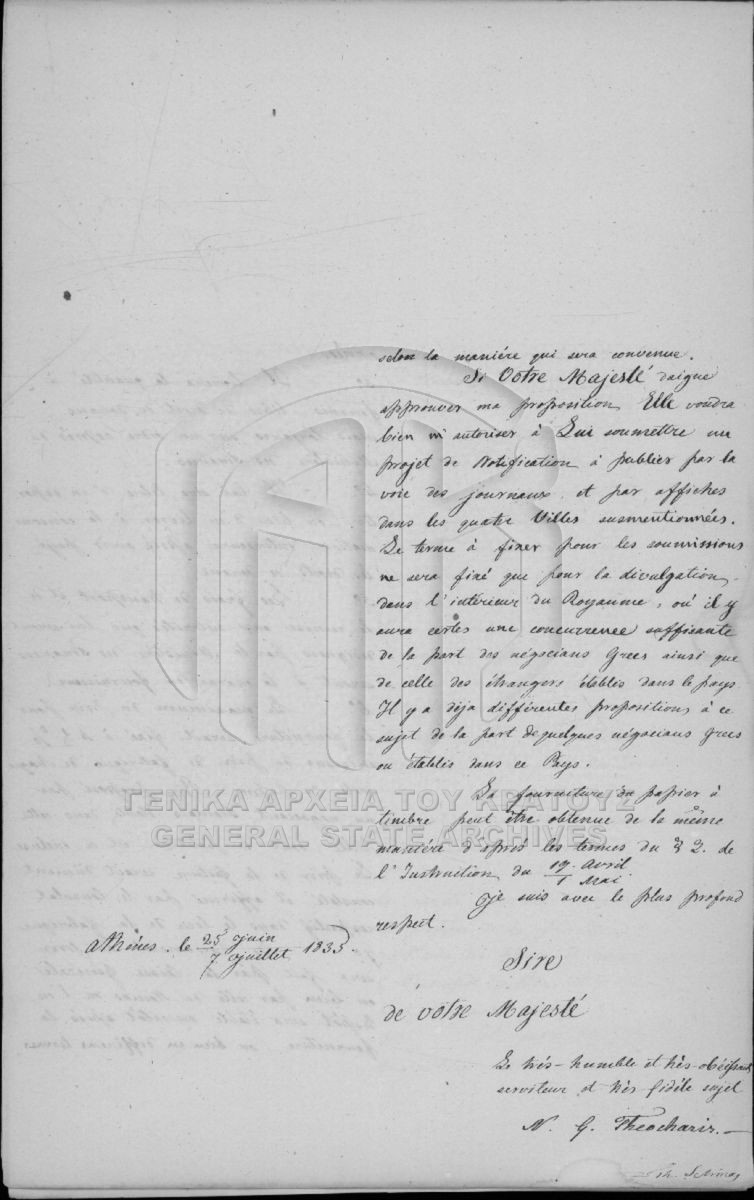 selon la maniére qui sera convenue.
Si Votre Majesté daigne
approuver ma proposition, Elle voudra
bien m'autoriser à Lui soumettre un
projet de Notification à publier par la
voie des journaux et par affiches
dans les quatre Villes susmentionnées.
Le terme à fixer pour les soumissions
ne sera fixé que pour la divulgation
dans l'intérieur du Royaume, où il y
aura certes une concurrence suffisante
de la part des négocians Grecs ainsi que
de celle des étrangers établis dans le pays.
Il y a déja différentes propositions à ce
sujet de la part de quelques négocians Grecs
ou établis dans ce Pays.
La fourniture du papier à
timbre peut être obtenue de la même
maniére d'après les termes du § 2. de
l'Instruction du 19. Avril
1 Mai
Je suis avec le plus profond
respect.
Athénes. le 25 Juin
7 Juillet 1835.
Sire
de votre Majesté
Le trés-humble et trés-obéissant
serviteur et trés fidéle sujet
N. G. Theocharis.
ΓΕΝΙΚΑ ΑΡΧΕΙΑ ΤΟΥ ΚΡΑΤΟΥΣ
GENERAL STATE ARCHIVES